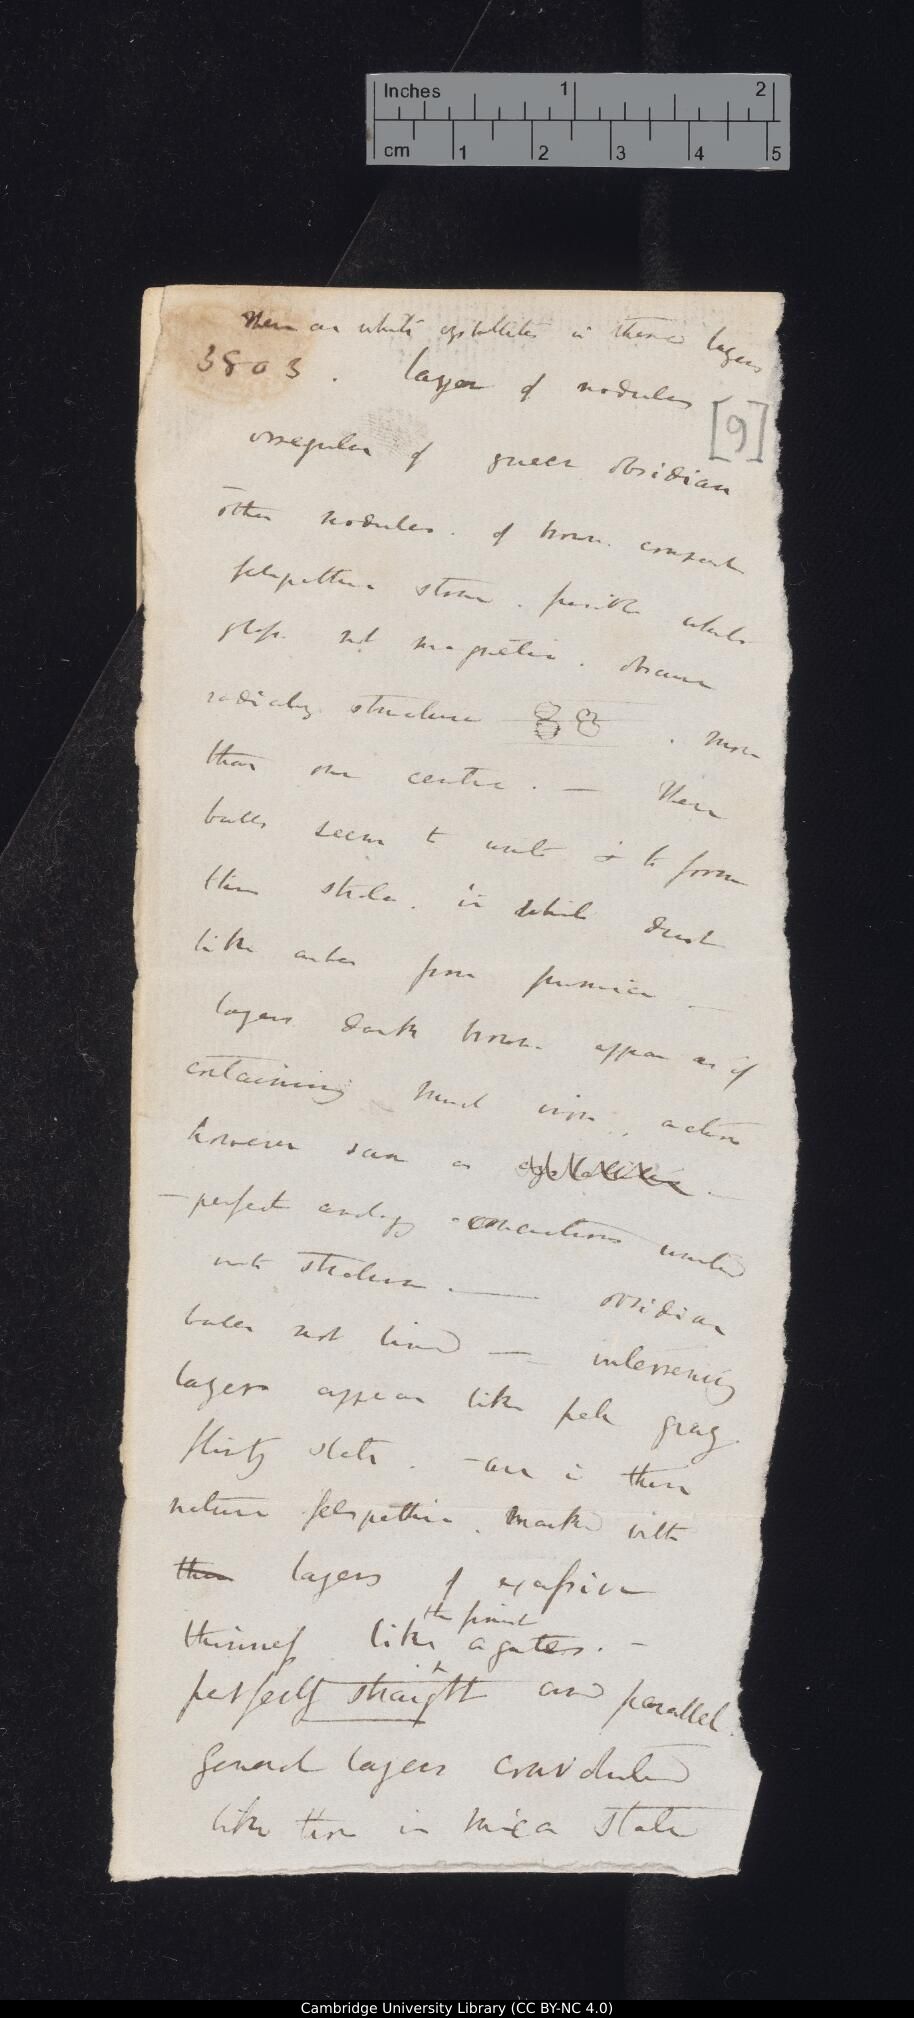 Inches 1 2
cm 1 2 3 4 5
There are white crystallites in these layers
3803. Layer of nodules
[9]
irregular of green obsidian
other nodules. of brown compact
felspathic stone. fusible white
glass not magnetic. obscure
radiating structure . more
than one centre. — These
balls seem to unite & to form
thin strata. in which dust
like ashes from pumice —
layers dark brown appear as if
containing much iron, action
however same as —
— perfect analogy concretions united
into stratum. — obsidian
balls not lined — intervening
layers appear like pale gray
flinty slate. — are in their
nature felspathic. marked with
then layers of excessive
the finest
thinness like agates. —
perfectly straight and parallel.
General layers convoluted
like those in mica slate
Cambridge University Library (CC BY-NC 4.0)